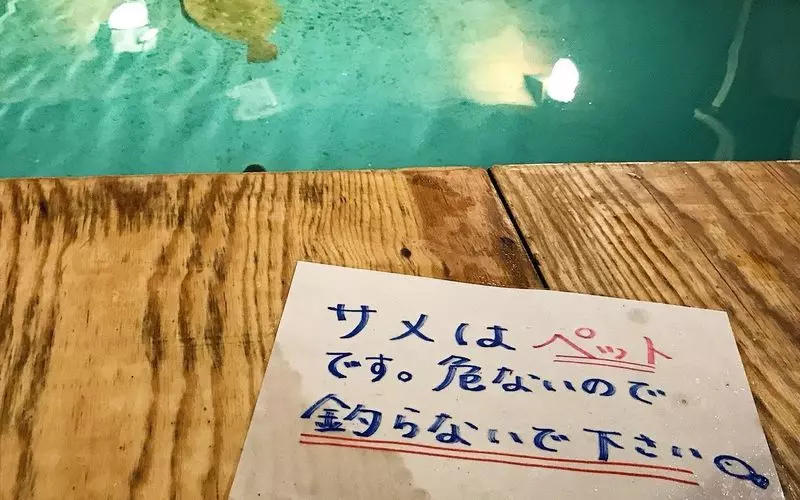 サメはペット
です。危ないので
釣らないで下さい